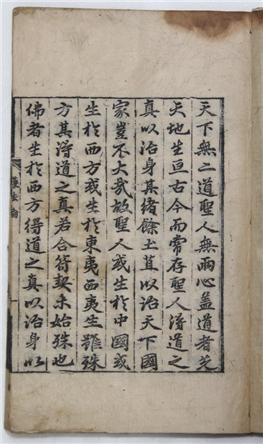 天下無二道聖人無兩心盖道者先
天地生亘古今而常存聖人淂道之
真以治身其緒餘土苴以治天下國
家豈不大哉故聖人或生扵中國或
生扵西方或生扵東夷西夷生雖殊
方其淂道之真若合符契未始殊也
佛者生扵西方得道之真以治身以
護法論